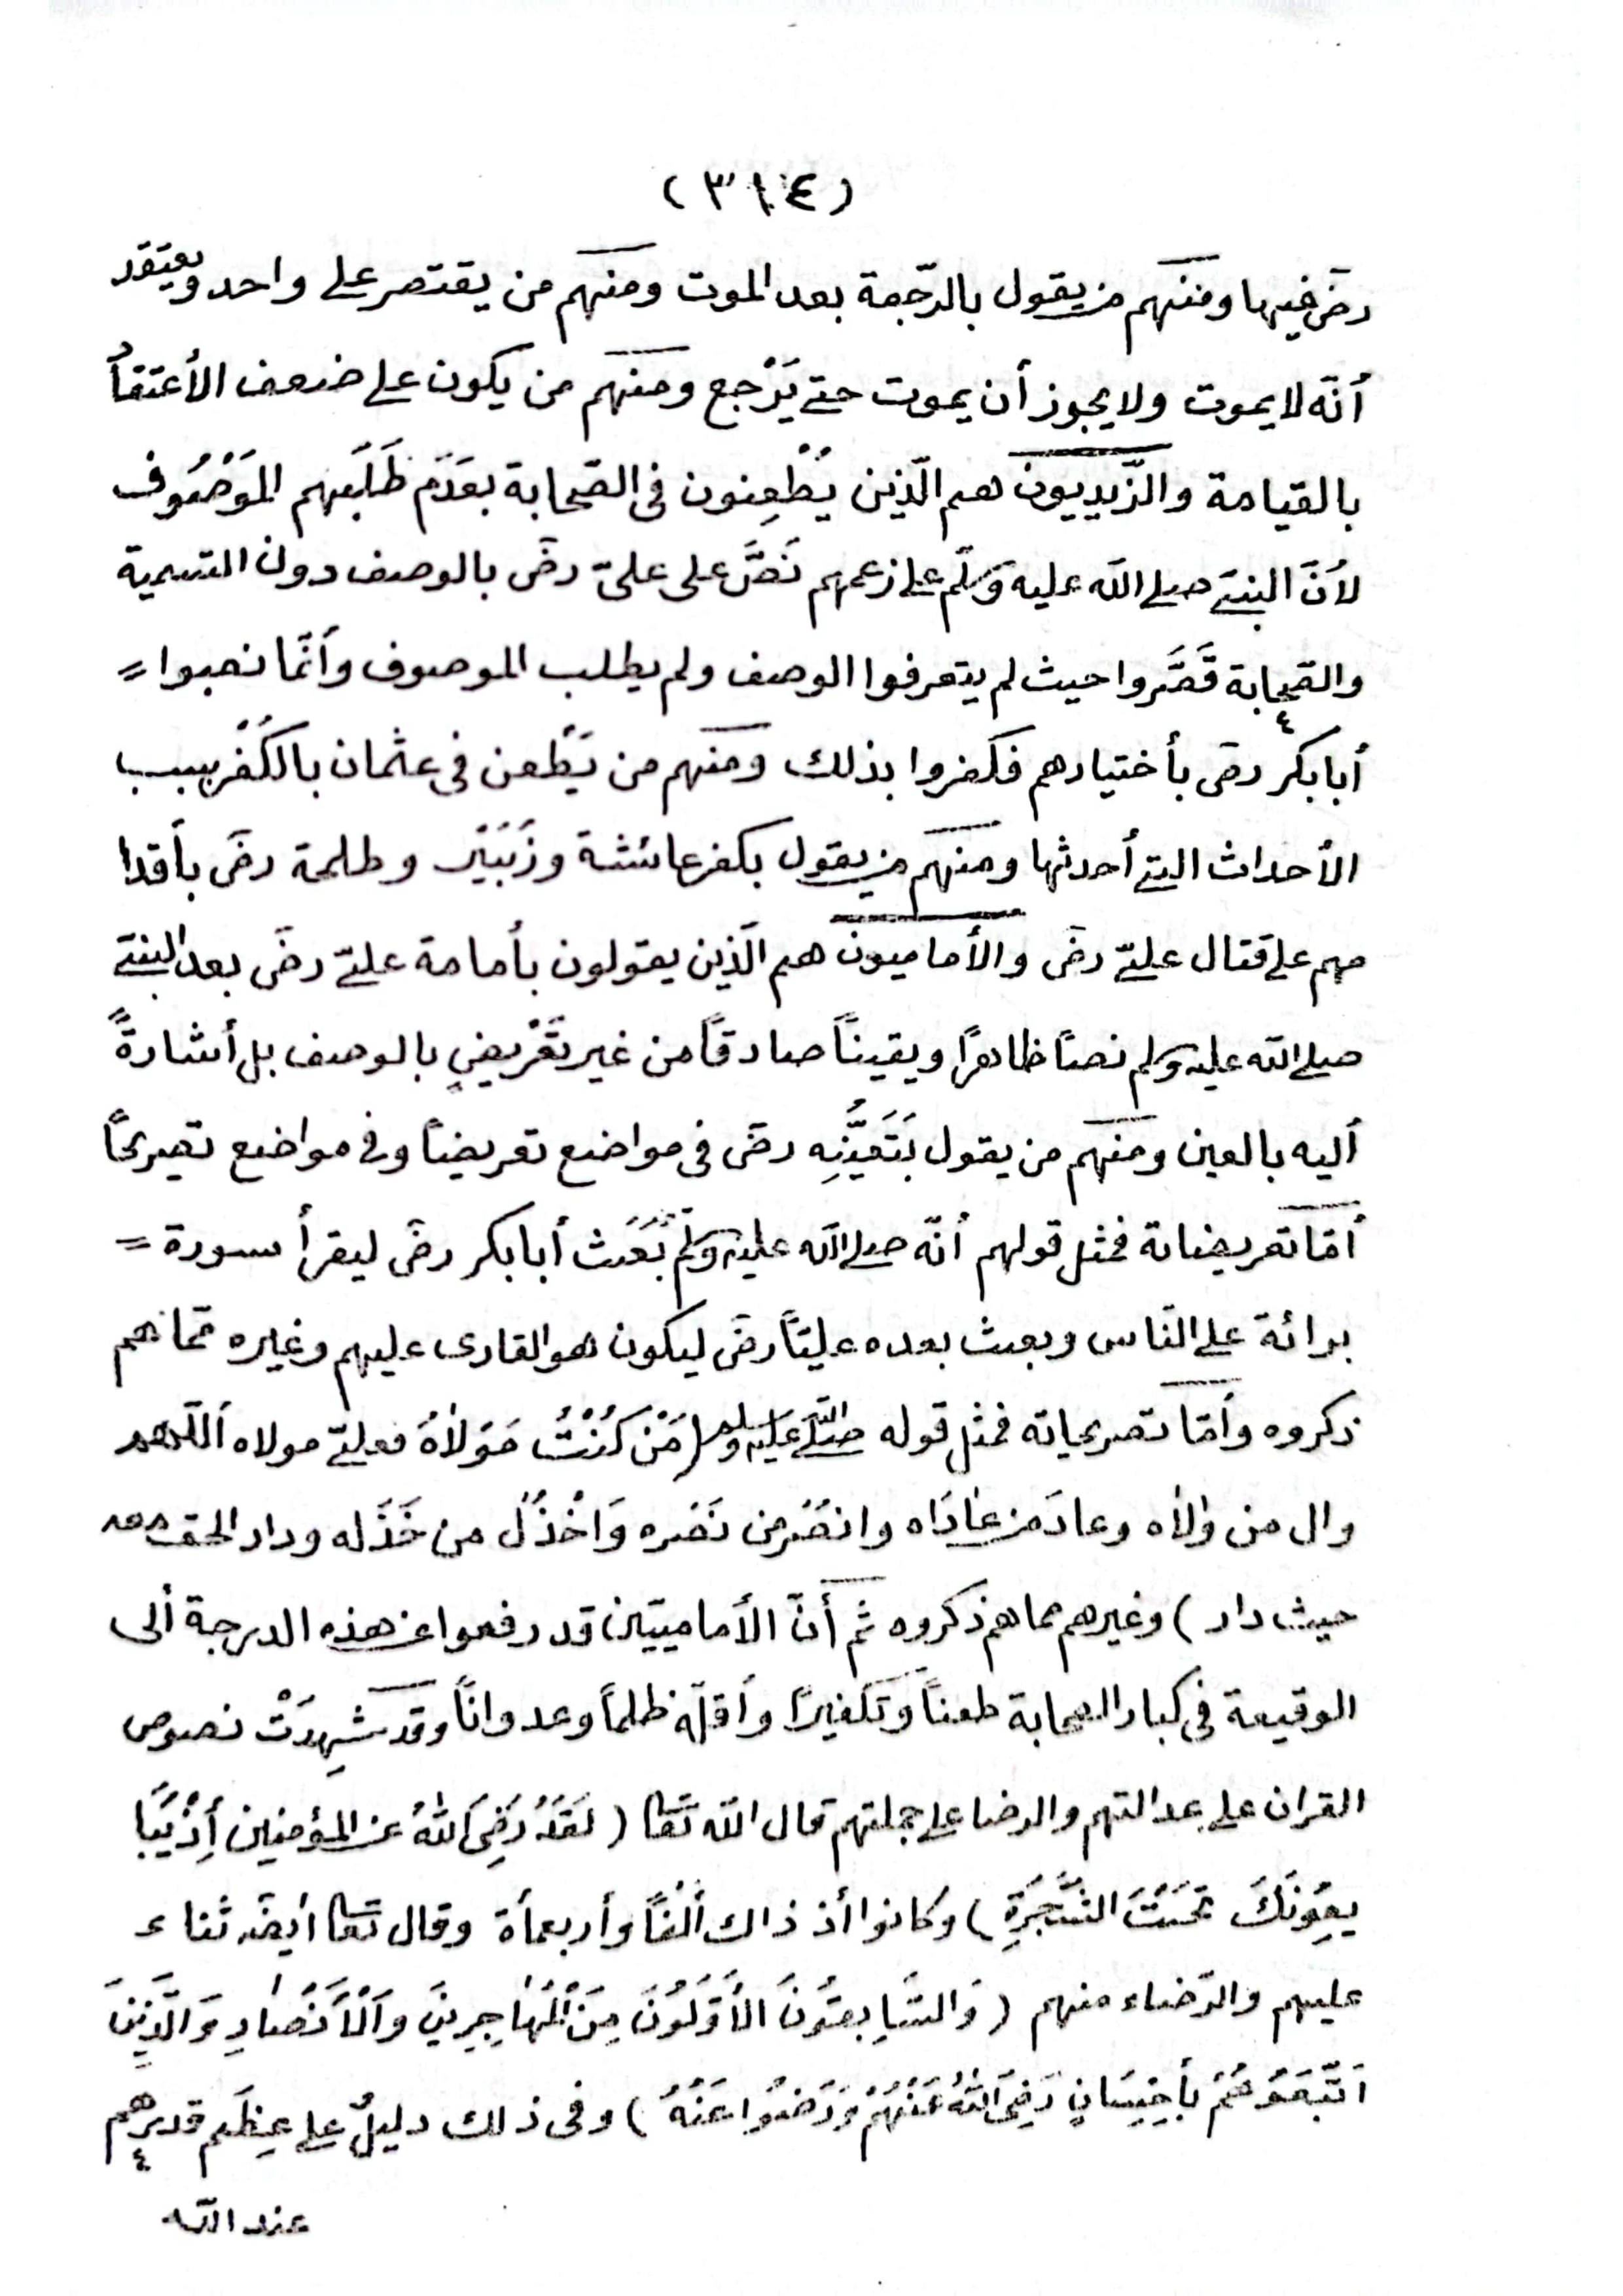 (٣١٤)
رضَ فيها ومنهم من يقول بالرّجعة بعد الموت ومنهم من يقتصر على واحد ويعتقد
أنّه لا يموت ولا يجوز أن يموت حتى يَرْجع ومنهم من يكون على ضعف الأعتقاد
بالقيامة والزّيديون هم الّذين يُطْعِنون فى الصّحابة بعَدَم طَلَبهم المَوْصُوف
لأنَّ النبيّ صلى الله عليه وسلّم على زعمهم نَصَّ على علىّ رضَ بالوصف دون التسمية
والصّحابة قَصَّروا حيث لم يتعرفوا الوصف ولم يطلب الموصوف وأنّما نصبوا =
أبا بكر رضَ بأختيارهم فكفروا بذلك ومنهم من يَطْعن فى عثمان بالكُفْر بسبب
الأحداث التى أحدثها ومنهم من يقول بكفر عائشة وزُبَيْر وطلحة رضَ بأقدا
مهم على قتال علىّ رضَ والأماميون هم الّذين يقولون بأمامة علىّ رضَ بعد النبىّ
صلى الله عليه وسلم نصاً ظاهرًا ويقيناً صادقاً من غير تَعْريضٍ بالوصف بل أشارةً
أليه بالعين ومنهم من يقول بَتَعَيُّنِه رضَ فى مواضع تعريضاً وفى مواضع تصريحاً
أمّا تعريضاته فمثل قولهم أنّه صلى الله عليه وسلم بَعَث أبا بكر رضَ ليقرأ سورة =
برائة على النّاس وبعث بعده عليّاً رضَ ليكون هو القارى عليهم وغيره ممّا هم
ذكروه وأمّا تصريحاته فمثل قوله صلّى الله عليه وسلم (مَنْ كُنْتُ مَوْلاٰهُ فعلىّ مولاه أللّهم
وال من وٰلاٰه وعادَ من عٰادَاه وانصُرْ من نَصَره وَاخْذُلْ من خَذَله ودار الحق معه
حيث دار ) وغيرهم مما هم ذكروه ثم أنّ الأماميّين قد رفعوا عن هذه الدرجة ألى
الوقيعة فى كبار الصحابة طعناً وتكفيرًا وأقلّه ظلماً وعدواناً وقد شهِدَتْ نصوص
القران على عدالتهم والرضا على جملتهم قال الله تعا ( لَقَدْ رَضِىَ اللهُ عن المؤمنين أِذْ يُبَا
يعِوُنَكَ تَحْتَ الشَّجَرَةِ ) وكانوا أذ ذاك ألْفاً وأربعمأة وقال تعا أيضَ ثناء
عليهم والرّضاء منهم ( وَالسَّابِقُونَ الأَوَّلُونَ مِنَ الْمُهٰاجِرِينَ وَالْأَنْصٰارِ وَالَّذِينَ
اتَّبَعَوُهُمْ بأِحْسَانٍ رَضِىَ اللهُ عَنْهُمْ وَرَضُوا عَنْهُ ) وفى ذلك دليلٌ على عِظَم قدرهم
عند الله